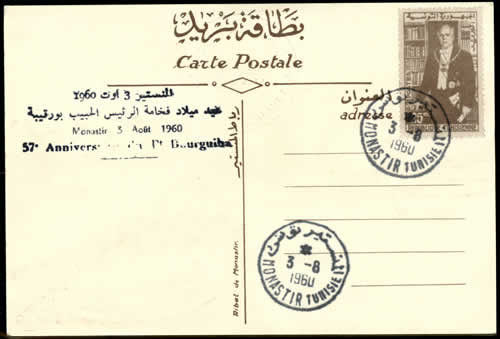 بطاقة بريد
Carte Postale
المنستير 3 اوت 1960
عيد ميلاد فخامة الرئيس الحبيب بورقيبة
Monastir 3 Août 1960
57e Anniversaire du Pt Bourguiba
رباط المنستير
Ribat de Monastir.
العنوان
adresse
المنستير تونس
3 -8
1960
MONASTIR TUNISIE
المنستير تونس
3 -8
1960
MONASTIR TUNISIE